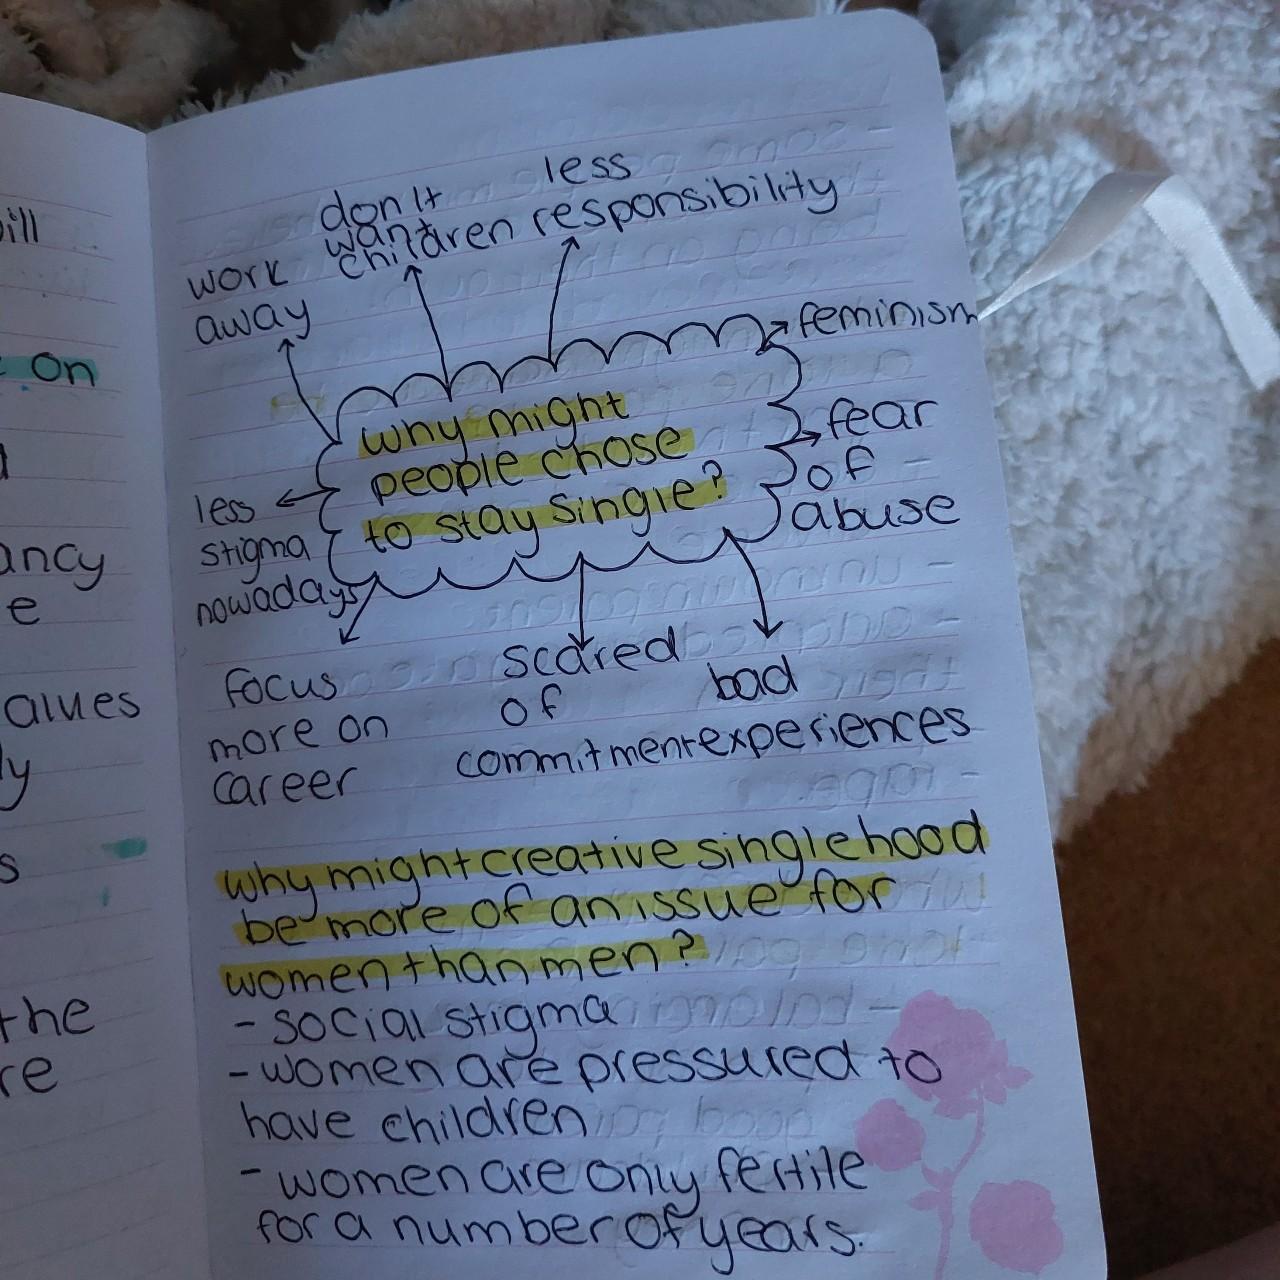 pill
on
ancy
e
alues
ly
s
the
re
less
responsibility
don't
want
children
work
away
feminism
why might
people chose
to stay single?
fear
of
abuse
less
stigma
nowadays
focus
more on
career
scared
of
commitment
bad
experiences
why might creative singlehood
be more of an issue for
women than men?
- social stigma
- women are pressured to
have children
- women are only fertile
for a number of years.